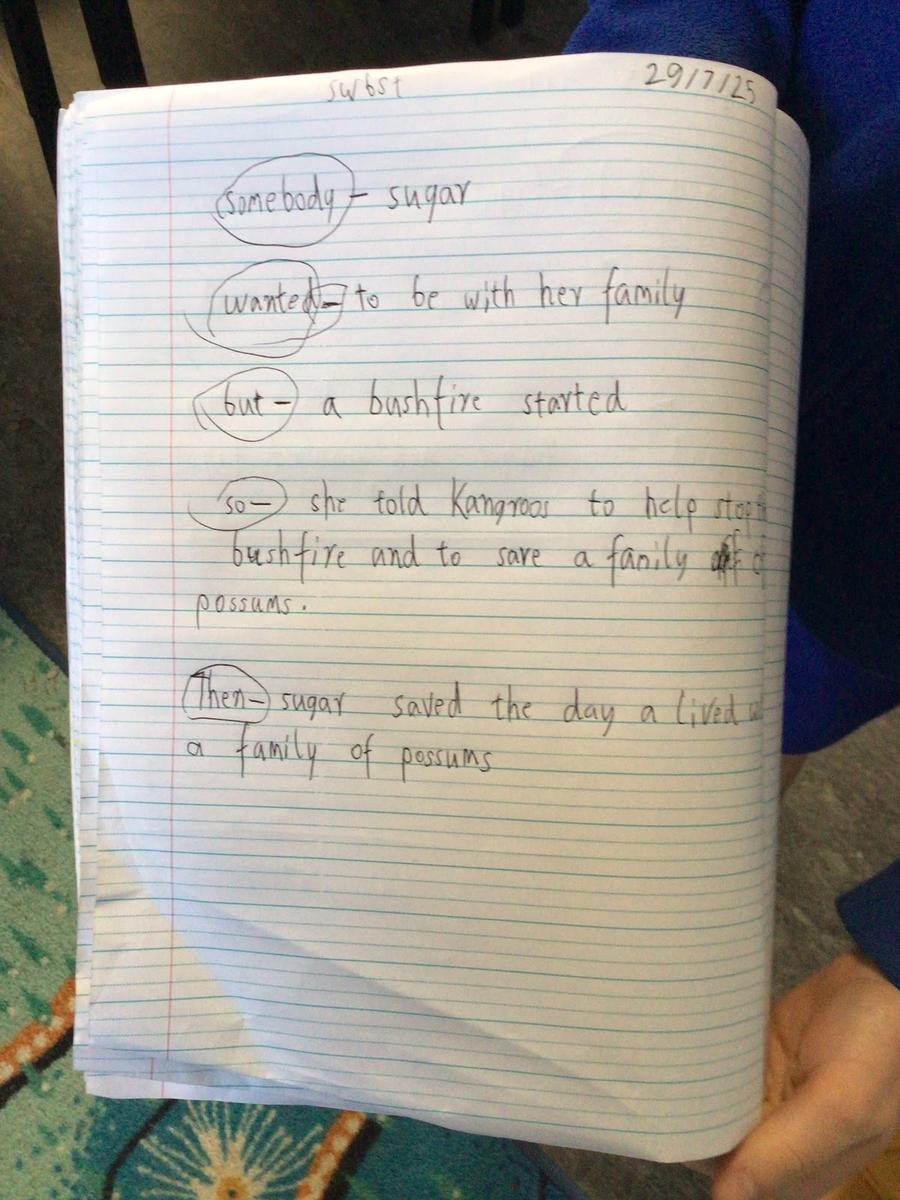 swbst
29/7/25
somebody - sugar
wanted - to be with her family
but - a bushfire started
so - she told Kangroos to help stop
bushfire and to save a family
possums.
Then - sugar saved the day a lived
a family of possums